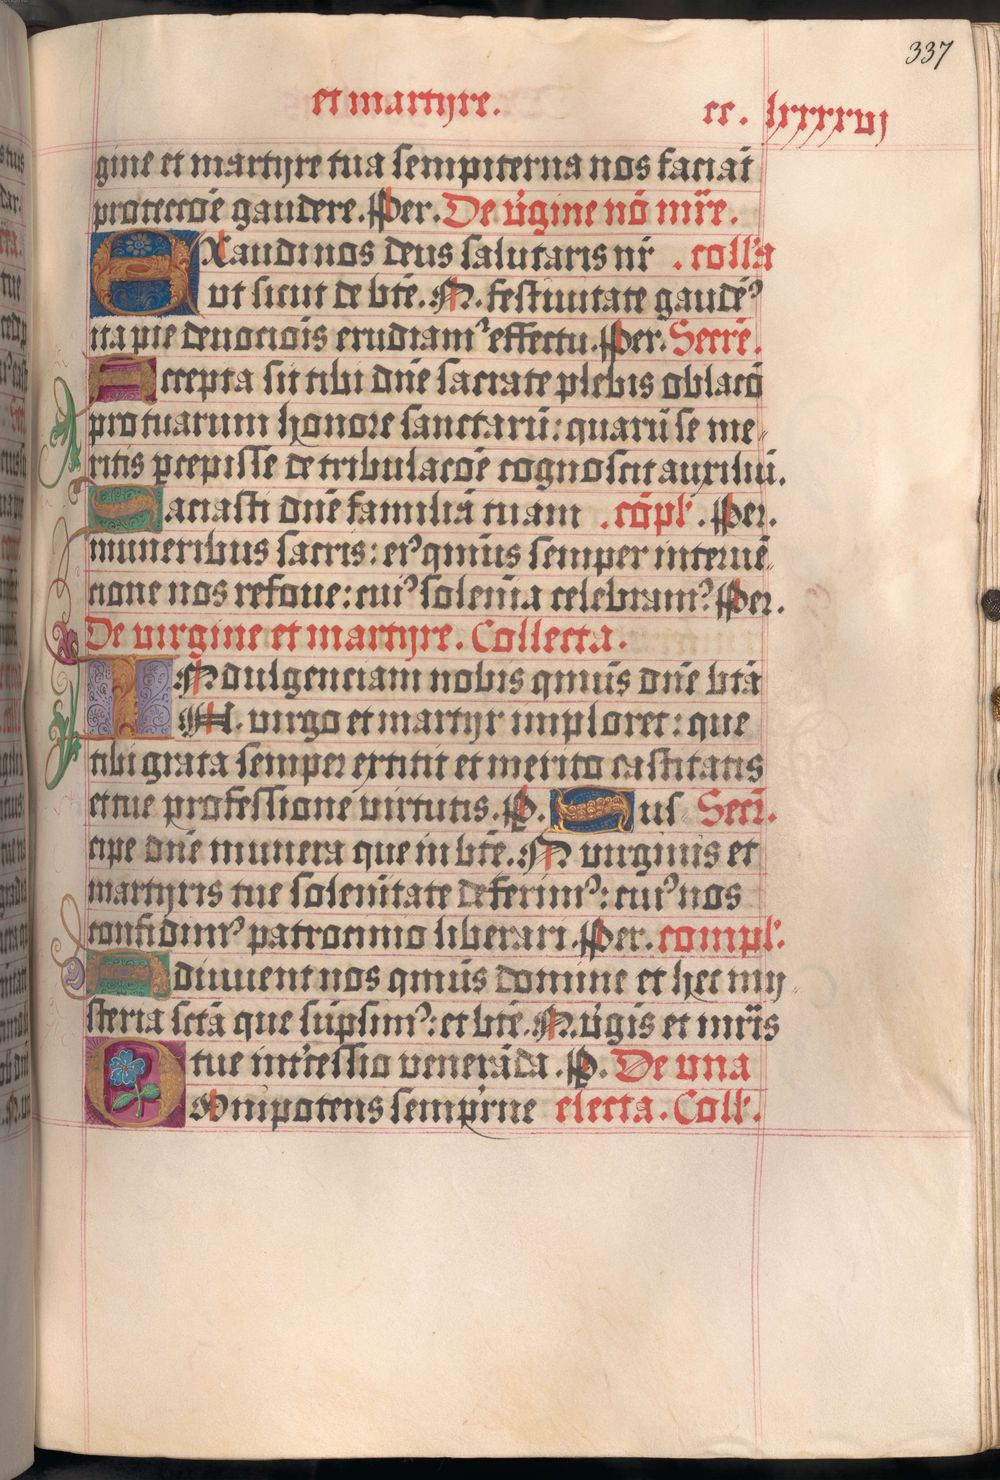 337
et martyre. cc. lxxxxvj
gine et martyre tua sempiterna nos faciat
proteccōe gaudere. Per. De v̇gine nō mr̄e.
EXaudi nos deus salutaris nr̄ . coll'a
vt sicut de bt̄e. N. festiuitate gaudem᷒
ita pie deuocōis erudiam᷒ effectu. Per. Secrē.
Accepta sit tibi dn̄e sacrate plebis oblacō
pro tuarum honore sanctarū: quarū se me
ritis ꝑcepisse de tribulacōe cognoscit auxiliū.
Saciasti dn̄e familiā tuam . cōpl'. Per.
muneribus sacris: er᷒ qm̄us semper interuē
cione nos refoue: cui᷒ solenīa celebram᷒. Per.
De virgine et martyre. Collecta.
INdulgenciam nobis qm̄us dn̄e btā
N. virgo et martyr imploret: que
tibi grata semper extitit et merito castitatis
et tue professione virtutis. P. Sus Secr̄.
cipe dn̄e munera que in bt̄e. N virginis et
martyris tue solenītate deferim᷒: cui᷒ nos
confidim᷒ patrocinio liberari. Per. compl'.
Adiuuent nos qm̄us domine et hec my
steria sctā que sūpsim᷒: et bt̄e. N. v̇gīs et mr̄is
tue int'cessio venerāda. P. De vna
Omnipotens semp'rne electa. Coll'.